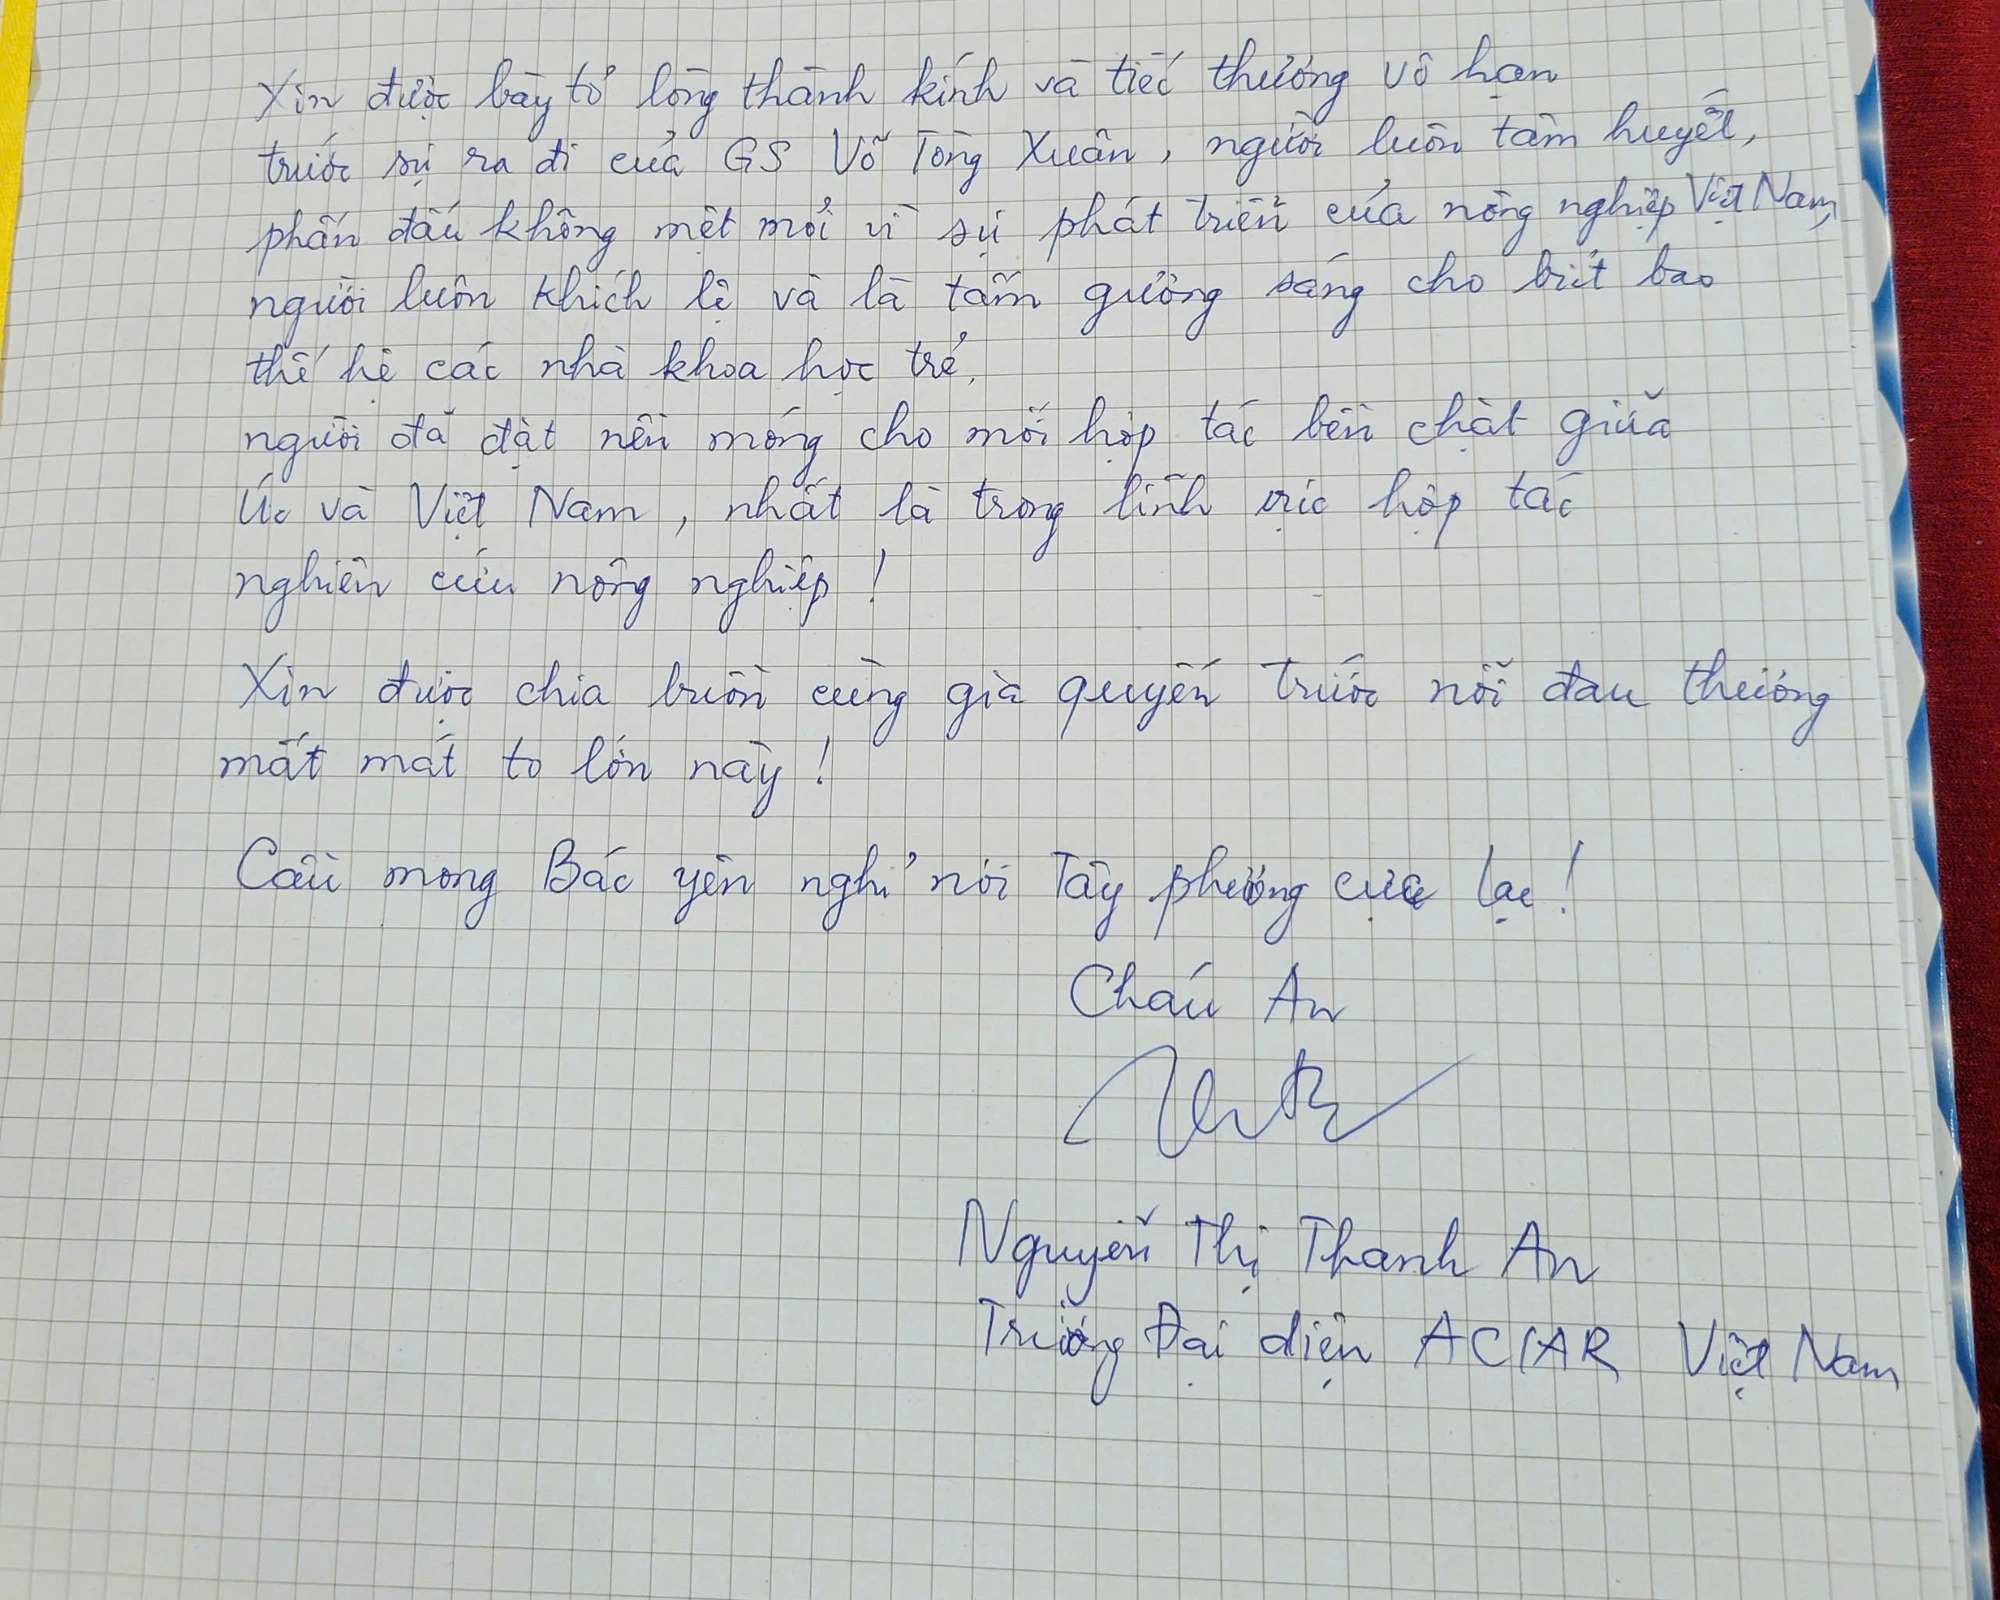 Xin được bày tỏ lòng thành kính và tiếc thương vô hạn
trước sự ra đi của GS Võ Tòng Xuân, người luôn tâm huyết,
phấn đấu không mệt mỏi vì sự phát triển của nông nghiệp Việt Nam,
người luôn khích lệ và là tấm gương sáng cho biết bao
thế hệ các nhà khoa học trẻ,
người đã đặt nền móng cho mối hợp tác bền chặt giữa
Úc và Việt Nam, nhất là trong lĩnh vực hợp tác
nghiên cứu nông nghiệp!
Xin được chia buồn cùng gia quyến trước nỗi đau thương
mất mát to lớn này!
Cầu mong Bác yên nghỉ nơi Tây phương cực lạc!
Cháu An
Nguyễn Thị Thanh An
Trưởng Đại diện ACIAR Việt Nam